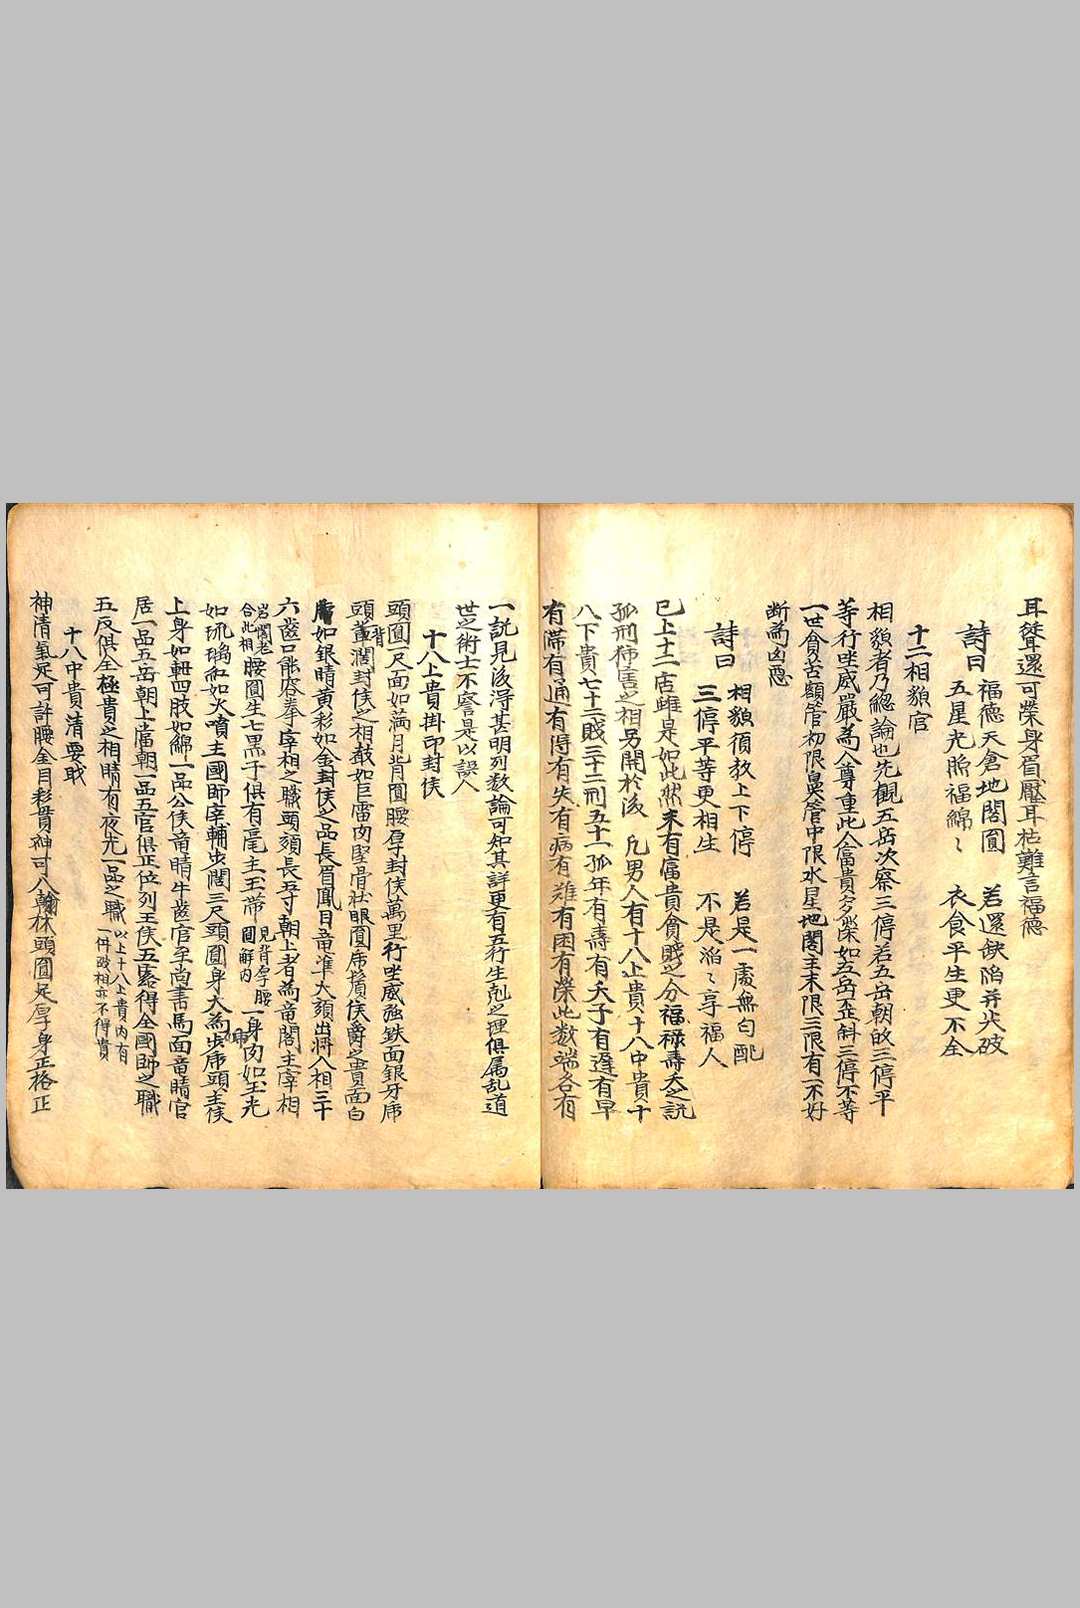 耳聳還可榮身眉壓耳枯難言福德
詩曰
福德天倉地閣圓 若還缺陷并尖破
五星光照福綿〻 衣食平生更不全
十二相貌官
相貌者乃總論也先觀五岳次察三停若五岳朝啟三停平
等行坐威嚴為人尊重此人富貴多榮如五岳歪斜三停不等
一世貧苦額管初限鼻管中限水星地閣主末限三限有一不好
断為凶惡
詩曰
相貌須教上下停 若是一處無勻配
三停平等更相生 不是滔〻享福人
已上十二宮雖是如此然未有富貴貧賤之分福祿壽夭之說
孤刑之相另開於後 凡男人有十八上貴十八中貴十
八下貴七十二賤三十二刑五十一孤年有壽有夭子有遲有早
有滯有通有得有失有病有難有困有榮此数端各有
一説見後淂甚明列数論可知其詳更有五行生剋之理俱属乱道
世之術士不詧是以誤人
十八上貴掛印封侯
頭圓一尺面如满月背圓腰厚封侯萬里行坐威強鉄面銀牙虎
頭背濶封侯之相数如巨雷肉堅骨壮眼圓虎鬚侯爵之貴面白
唇如銀睛黄彩如金封侯之品長眉鳳目竜準大頭出將入相三十
六齒口能容拳宰相之職頭頸長五寸朝上者為竜閣主宰相
岩閣老
合此相
腰圓生七黒子俱有毫主玉帶
見背厚腰
圓解内
一身肉如玉光
如琉璃和如火噴主國師宰輔步闊三尺頭圓身大為虎步虎頭主侯
上身如軒四肢如綿一品公侯竜睛牛齒官至尚書馬面竜睛官
居一品五岳朝上當朝一品五官俱正位列王侯五露得全國師之職
五反俱全極貴之相睛有夜光一品之職
以上十八上貴内有
一件破相亦不得貴
十八中貴清要職
神清氣足可許腰金目彩貴神可入翰林頭圓足厚身正格正